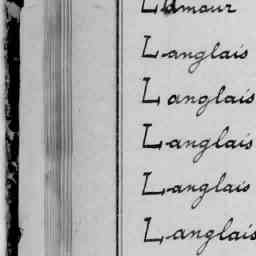 Lamour
Langlais
Langlais
Langlais
Langlais
Langlais